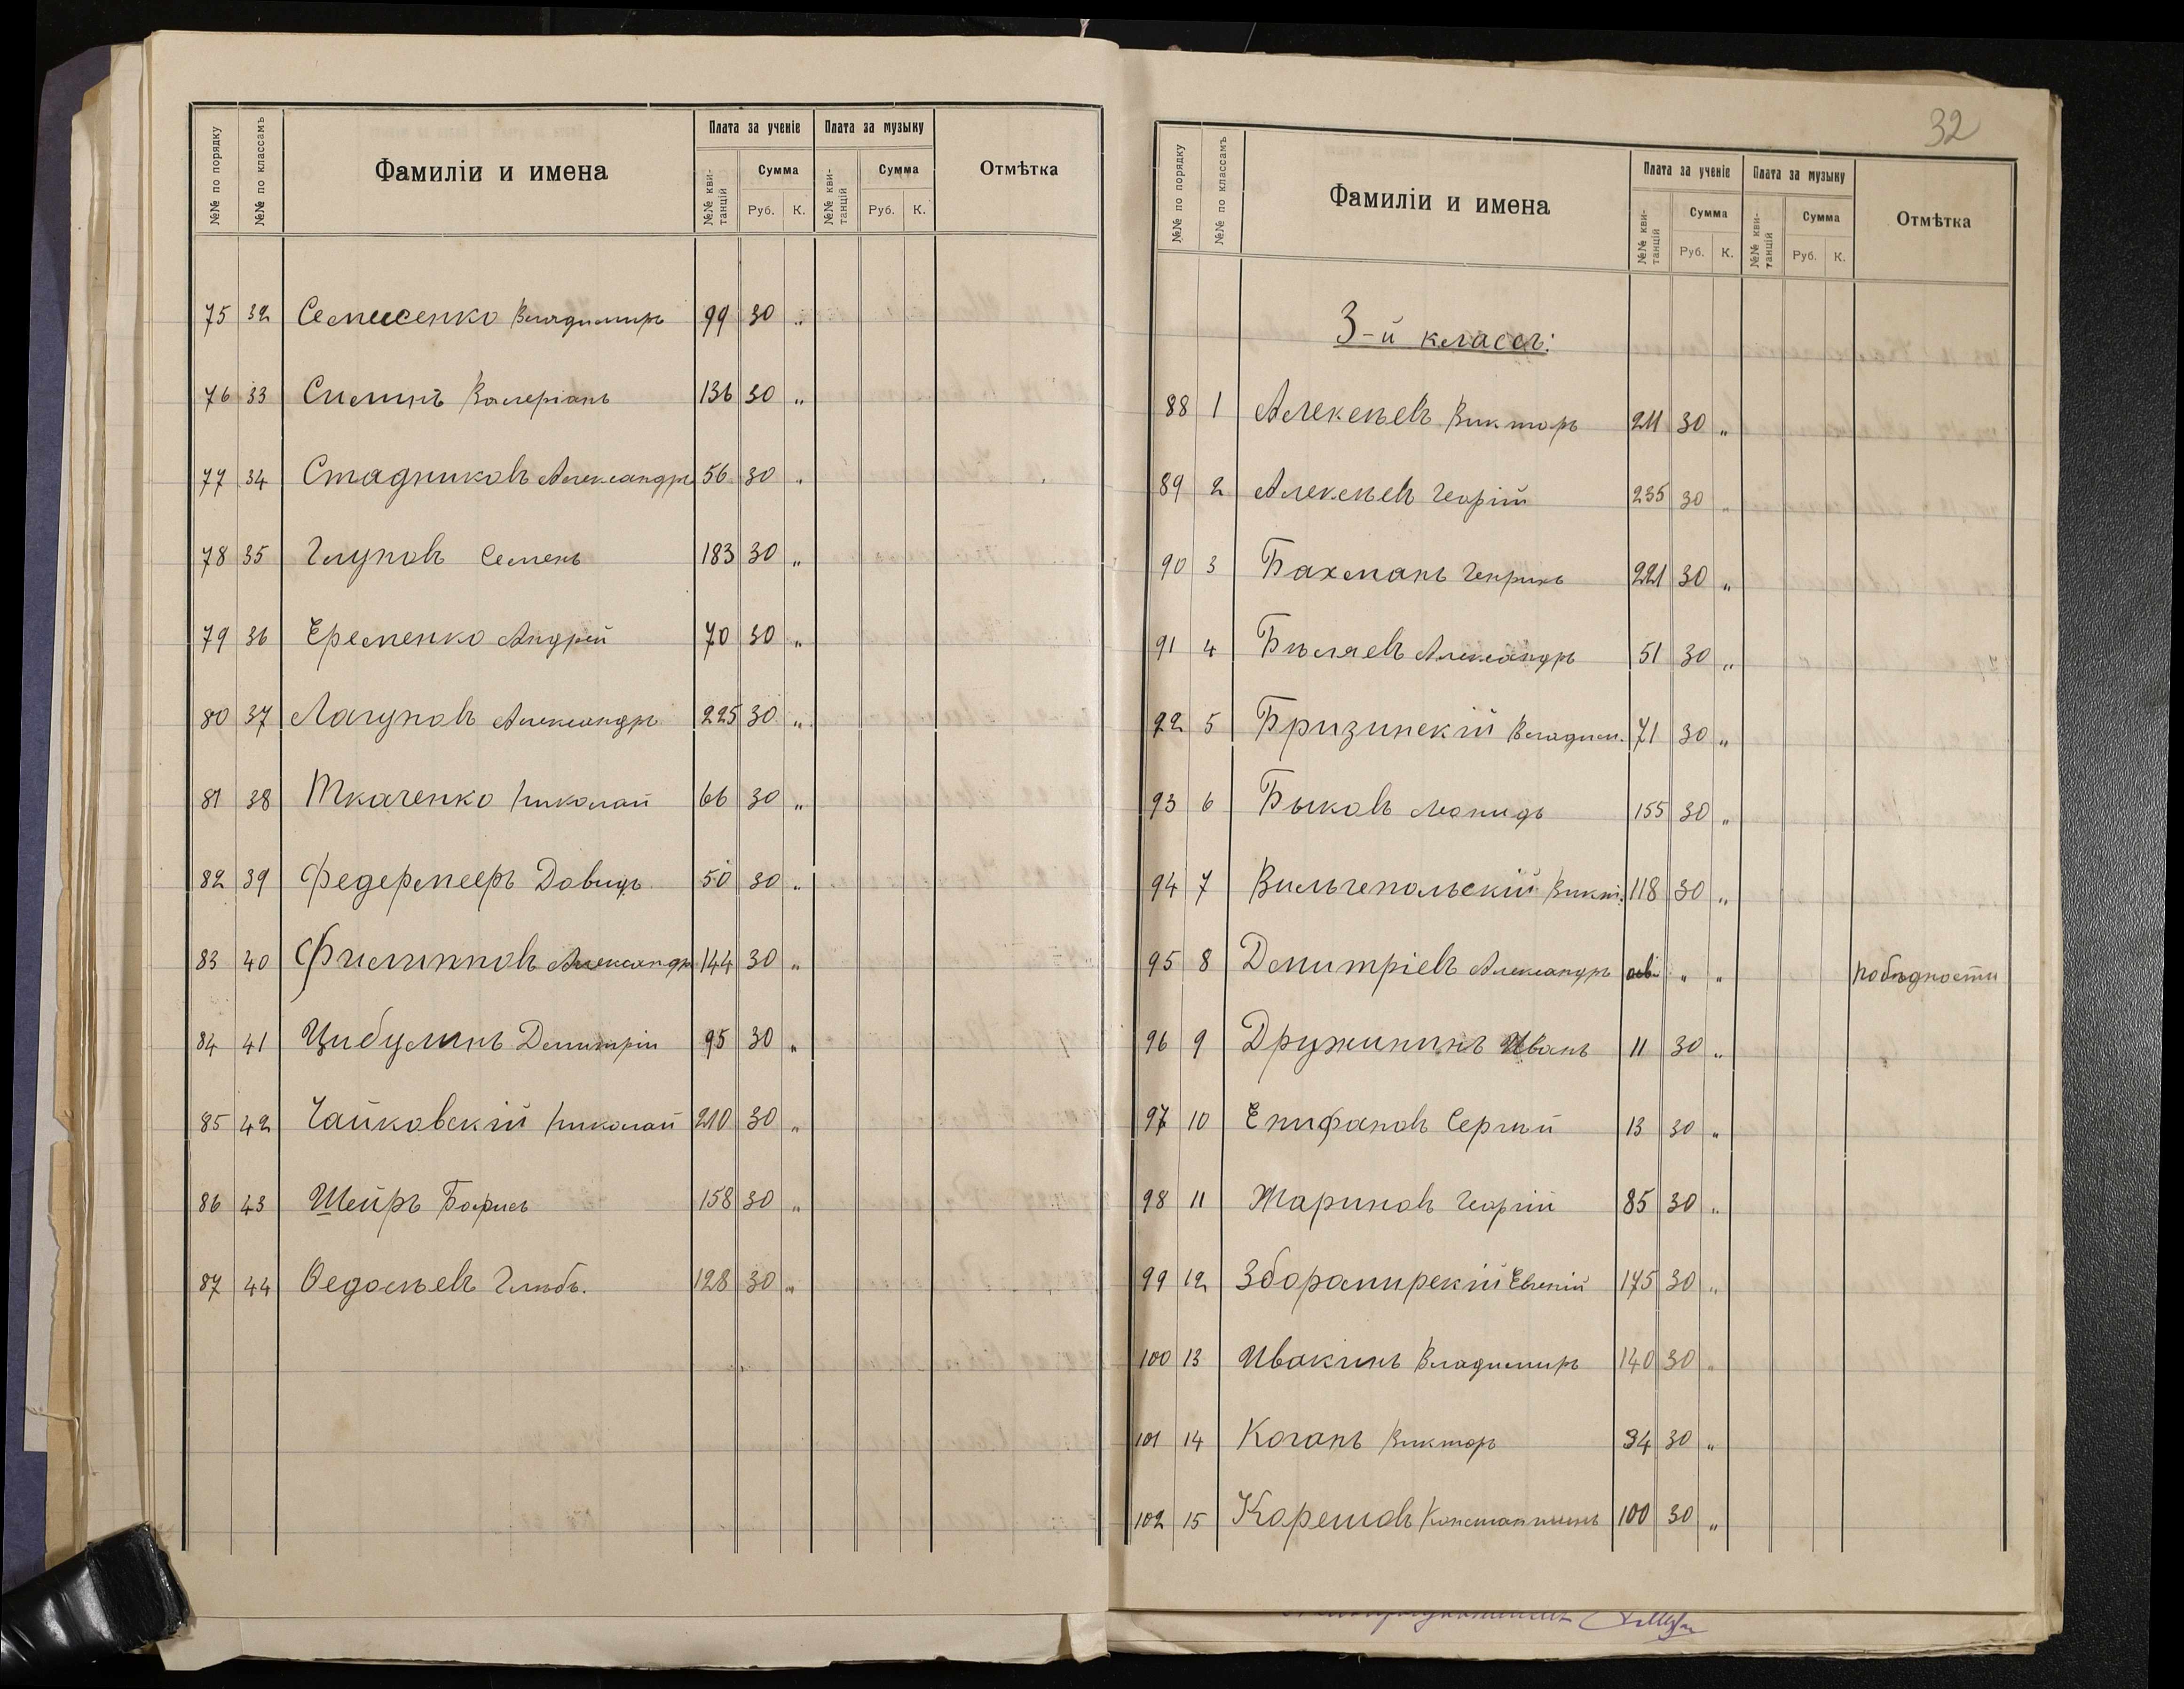 №№ по порядку №№ по классамъ Фамиліи и имена Плата за ученіе Плата за музыку Отмѣтка
№№ кви-танцій Сумма №№ кви-танцій Сумма
Руб. К. Руб. К.
75 32 Семисенко Владимиръ 99 30 "
76 33 Силинъ Валеріанъ 136 30 "
77 34 Стадниковъ Александръ 56 30 "
78 35 Глуповъ Семенъ 183 30 "
79 36 Еременко Андрей 70 30 "
80 37 Лагуновъ Александръ 225 30 "
81 38 Ткаченко Николай 66 30 "
82 39 Федермееръ Давидъ 50 30 "
83 40 Филипповъ Александръ 144 30 "
84 41 Цибулинъ Димитрій 95 30 "
85 42 Чайковскій Николай 210 30 "
86 43 Шейръ Борисъ 158 30 "
87 44 Ѳедосѣевъ Глѣбъ. 128 30 "
32
№№ по порядку №№ по классамъ Фамиліи и имена Плата за ученіе Плата за музыку Отмѣтка
№№ кви-танцій Сумма №№ кви-танцій Сумма
Руб. К. Руб. К.
3-й классъ:
88 1 Алексѣевъ Викторъ 211 30 "
89 2 Алексѣевъ Георгій 235 30 "
90 3 Бахманъ Генрихъ 221 30 "
91 4 Бѣляевъ Александръ 51 30 "
92 5 Бризинскій Владим. 71 30 "
93 6 Быковъ Леонидъ 155 30 "
94 7 Вильчепольскій Викт. 118 30 "
95 8 Димитріевъ Александръ осв. " " по бѣдности
96 9 Дружининъ Иванъ 11 30 "
97 10 Епифановъ Сергѣй 13 30 "
98 11 Жариновъ Георгій 85 30 "
99 12 Зборамирскій Евгеній 175 30 "
100 13 Ивакинъ Владимиръ 140 30 "
101 14 Коганъ Викторъ 94 30 "
102 15 Карешовъ Константинъ 100 30 "